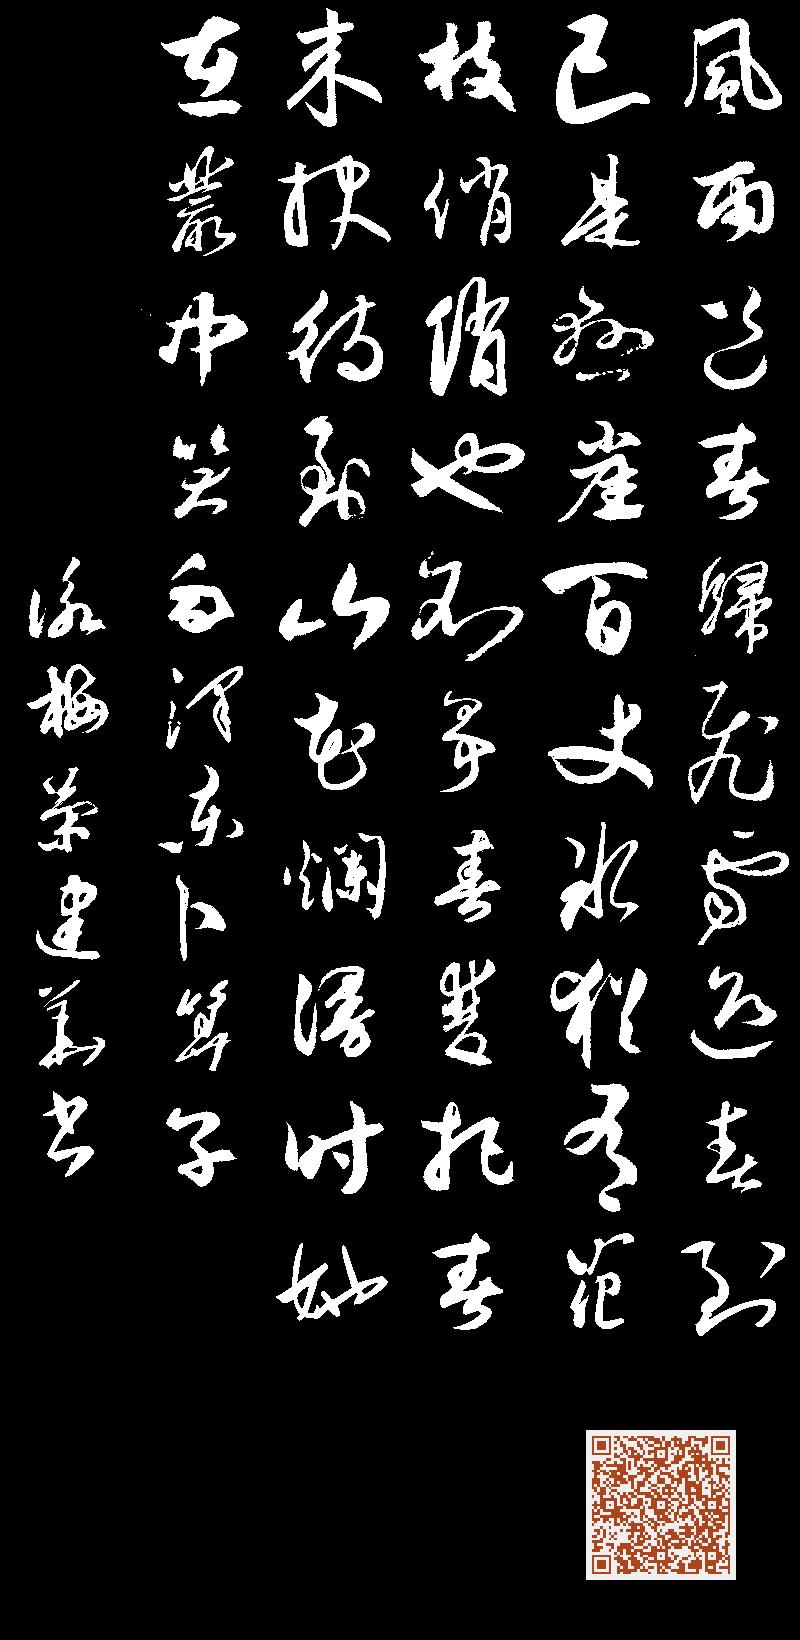 風雨送春歸飛雪迎春到
已是懸崖百丈冰猶有花
枝俏俏也不爭春把春
來報待到山花爛漫時她
在叢中笑毛澤東卜算子
詠梅建書